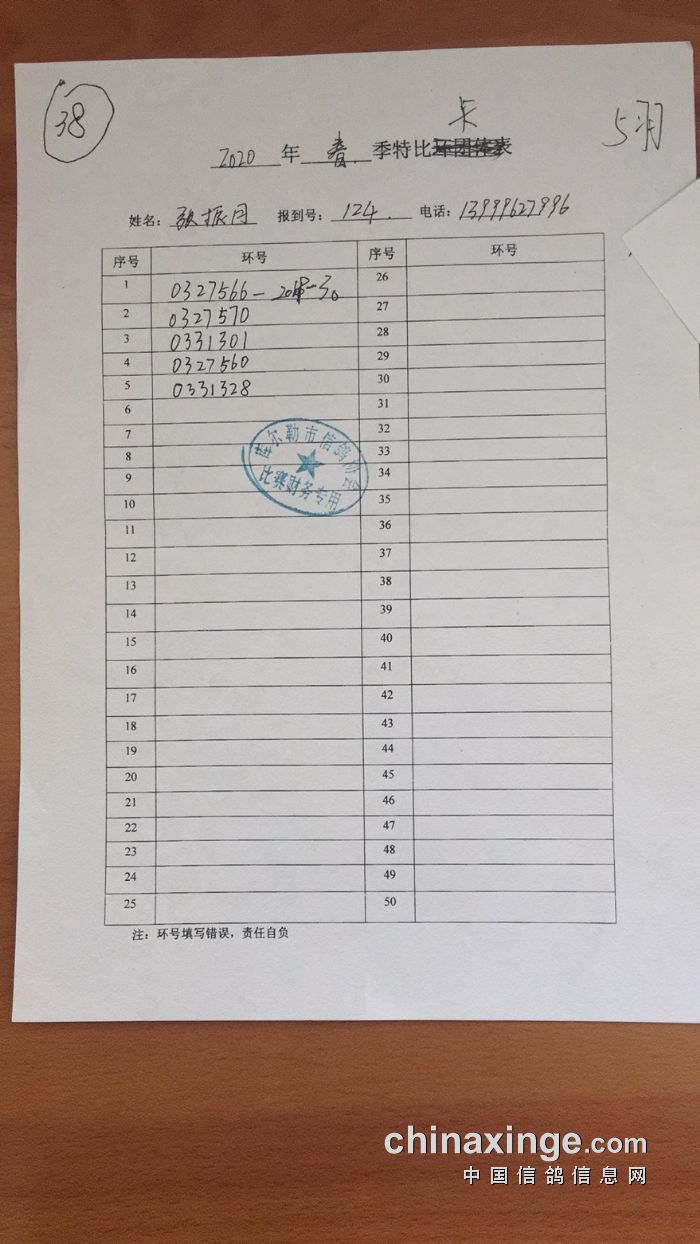 38
卡
5羽
2020 年 春 季特比环团体表
姓名: 张振月 报到号: 124 电话: 13999627996
序号 环号 序号 环号
1 0327566 26
2 0327570 27
3 0331301 28
4 0327560 29
5 0331328 30
6 31
7 32
8 33
9 34
10 35
11 36
12 37
13 38
14 39
15 40
16 41
17 42
18 43
19 44
20 45
21 46
22 47
23 48
24 49
25 50
库尔勒市信鸽协会
比赛财务专用
注: 环号填写错误, 责任自负
chinaxinge.com
中国信鸽信息网